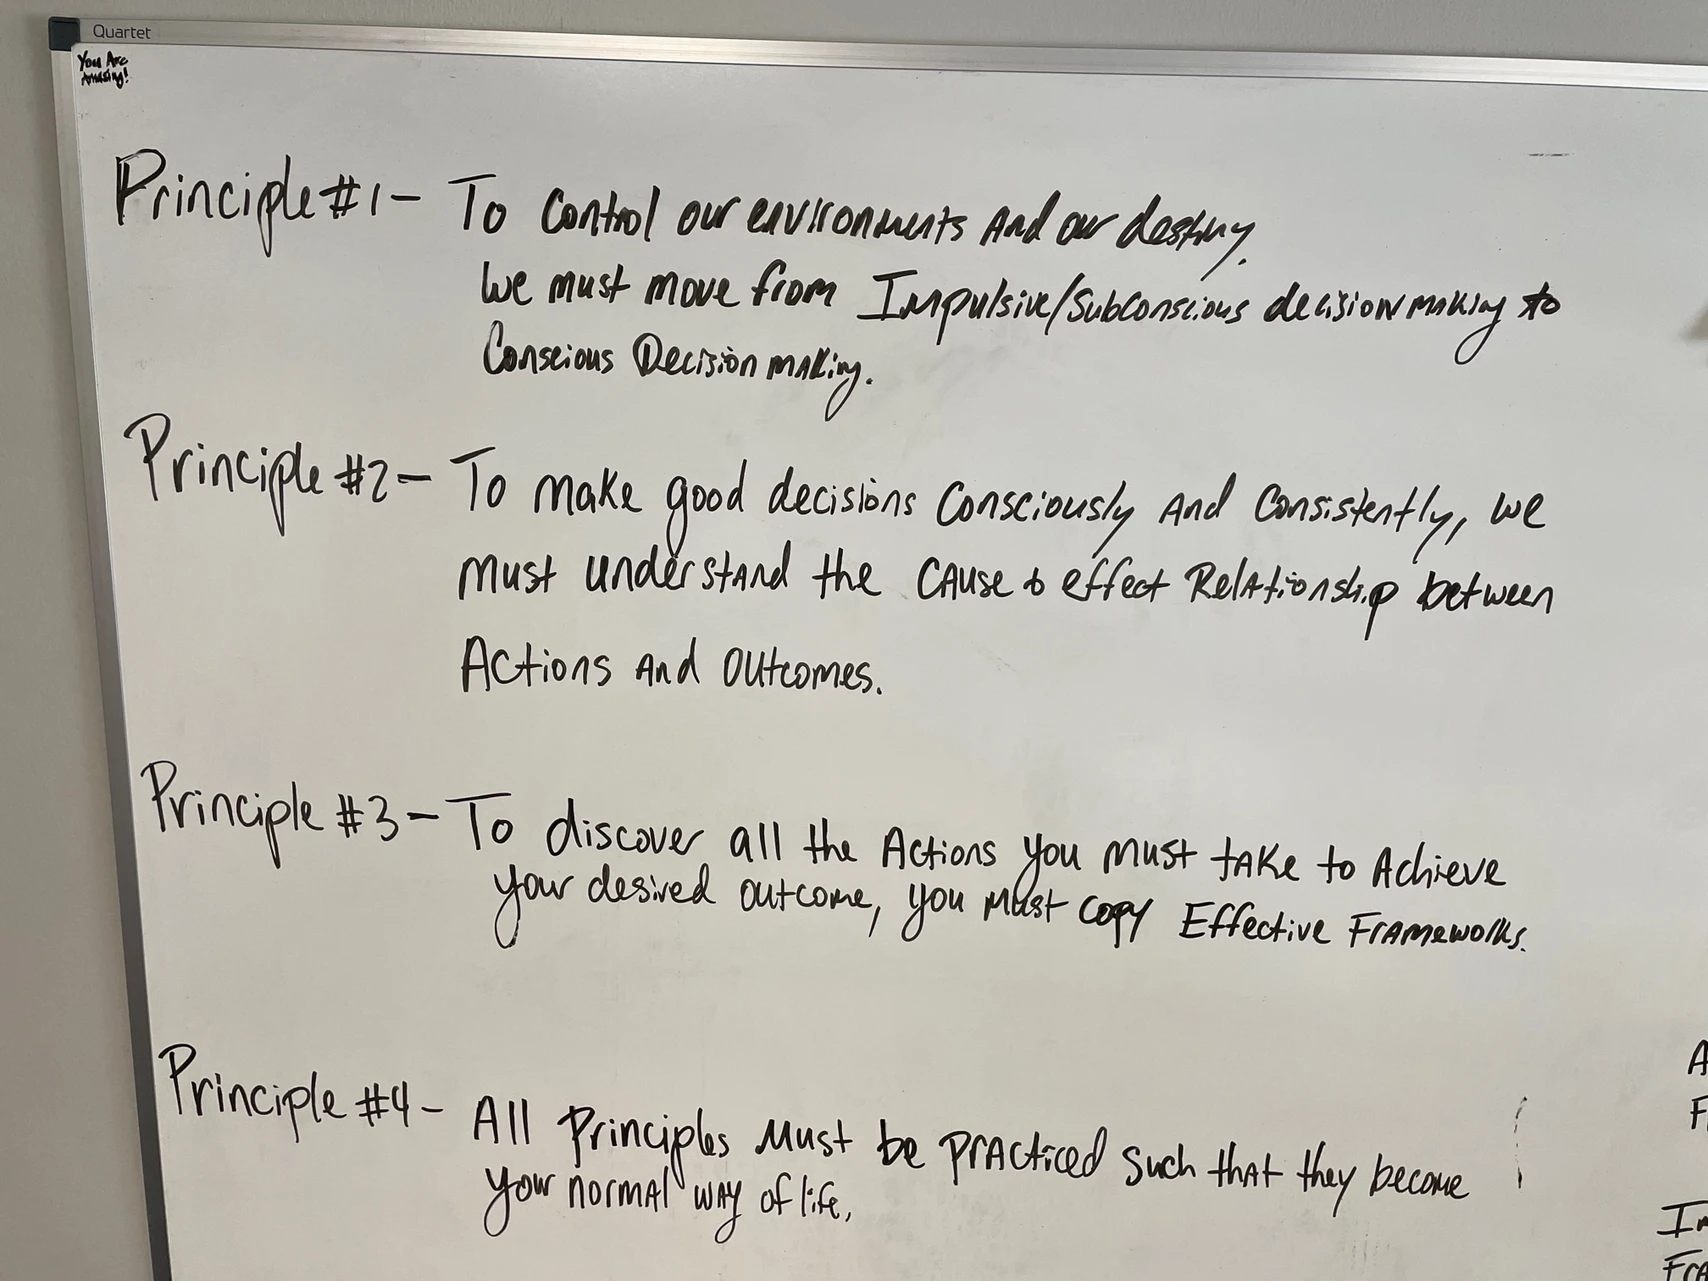 Quartet
You Are
Amazing!
Principle #1- To Control our environments And our destiny.
We must move from Impulsive/Subconscious decision making to
Conscious Decision making.
Principle #2- To make good decisions Consciously And Consistently, we
must understand the CAUSE & effect Relationship between
Actions And Outcomes.
Principle #3- To discover all the Actions you must take to Achieve
your desired outcome, you must copy Effective Frameworks.
Principle #4- All Principles Must be practiced such that they become
your normal way of life.
A
F
Im
Fra